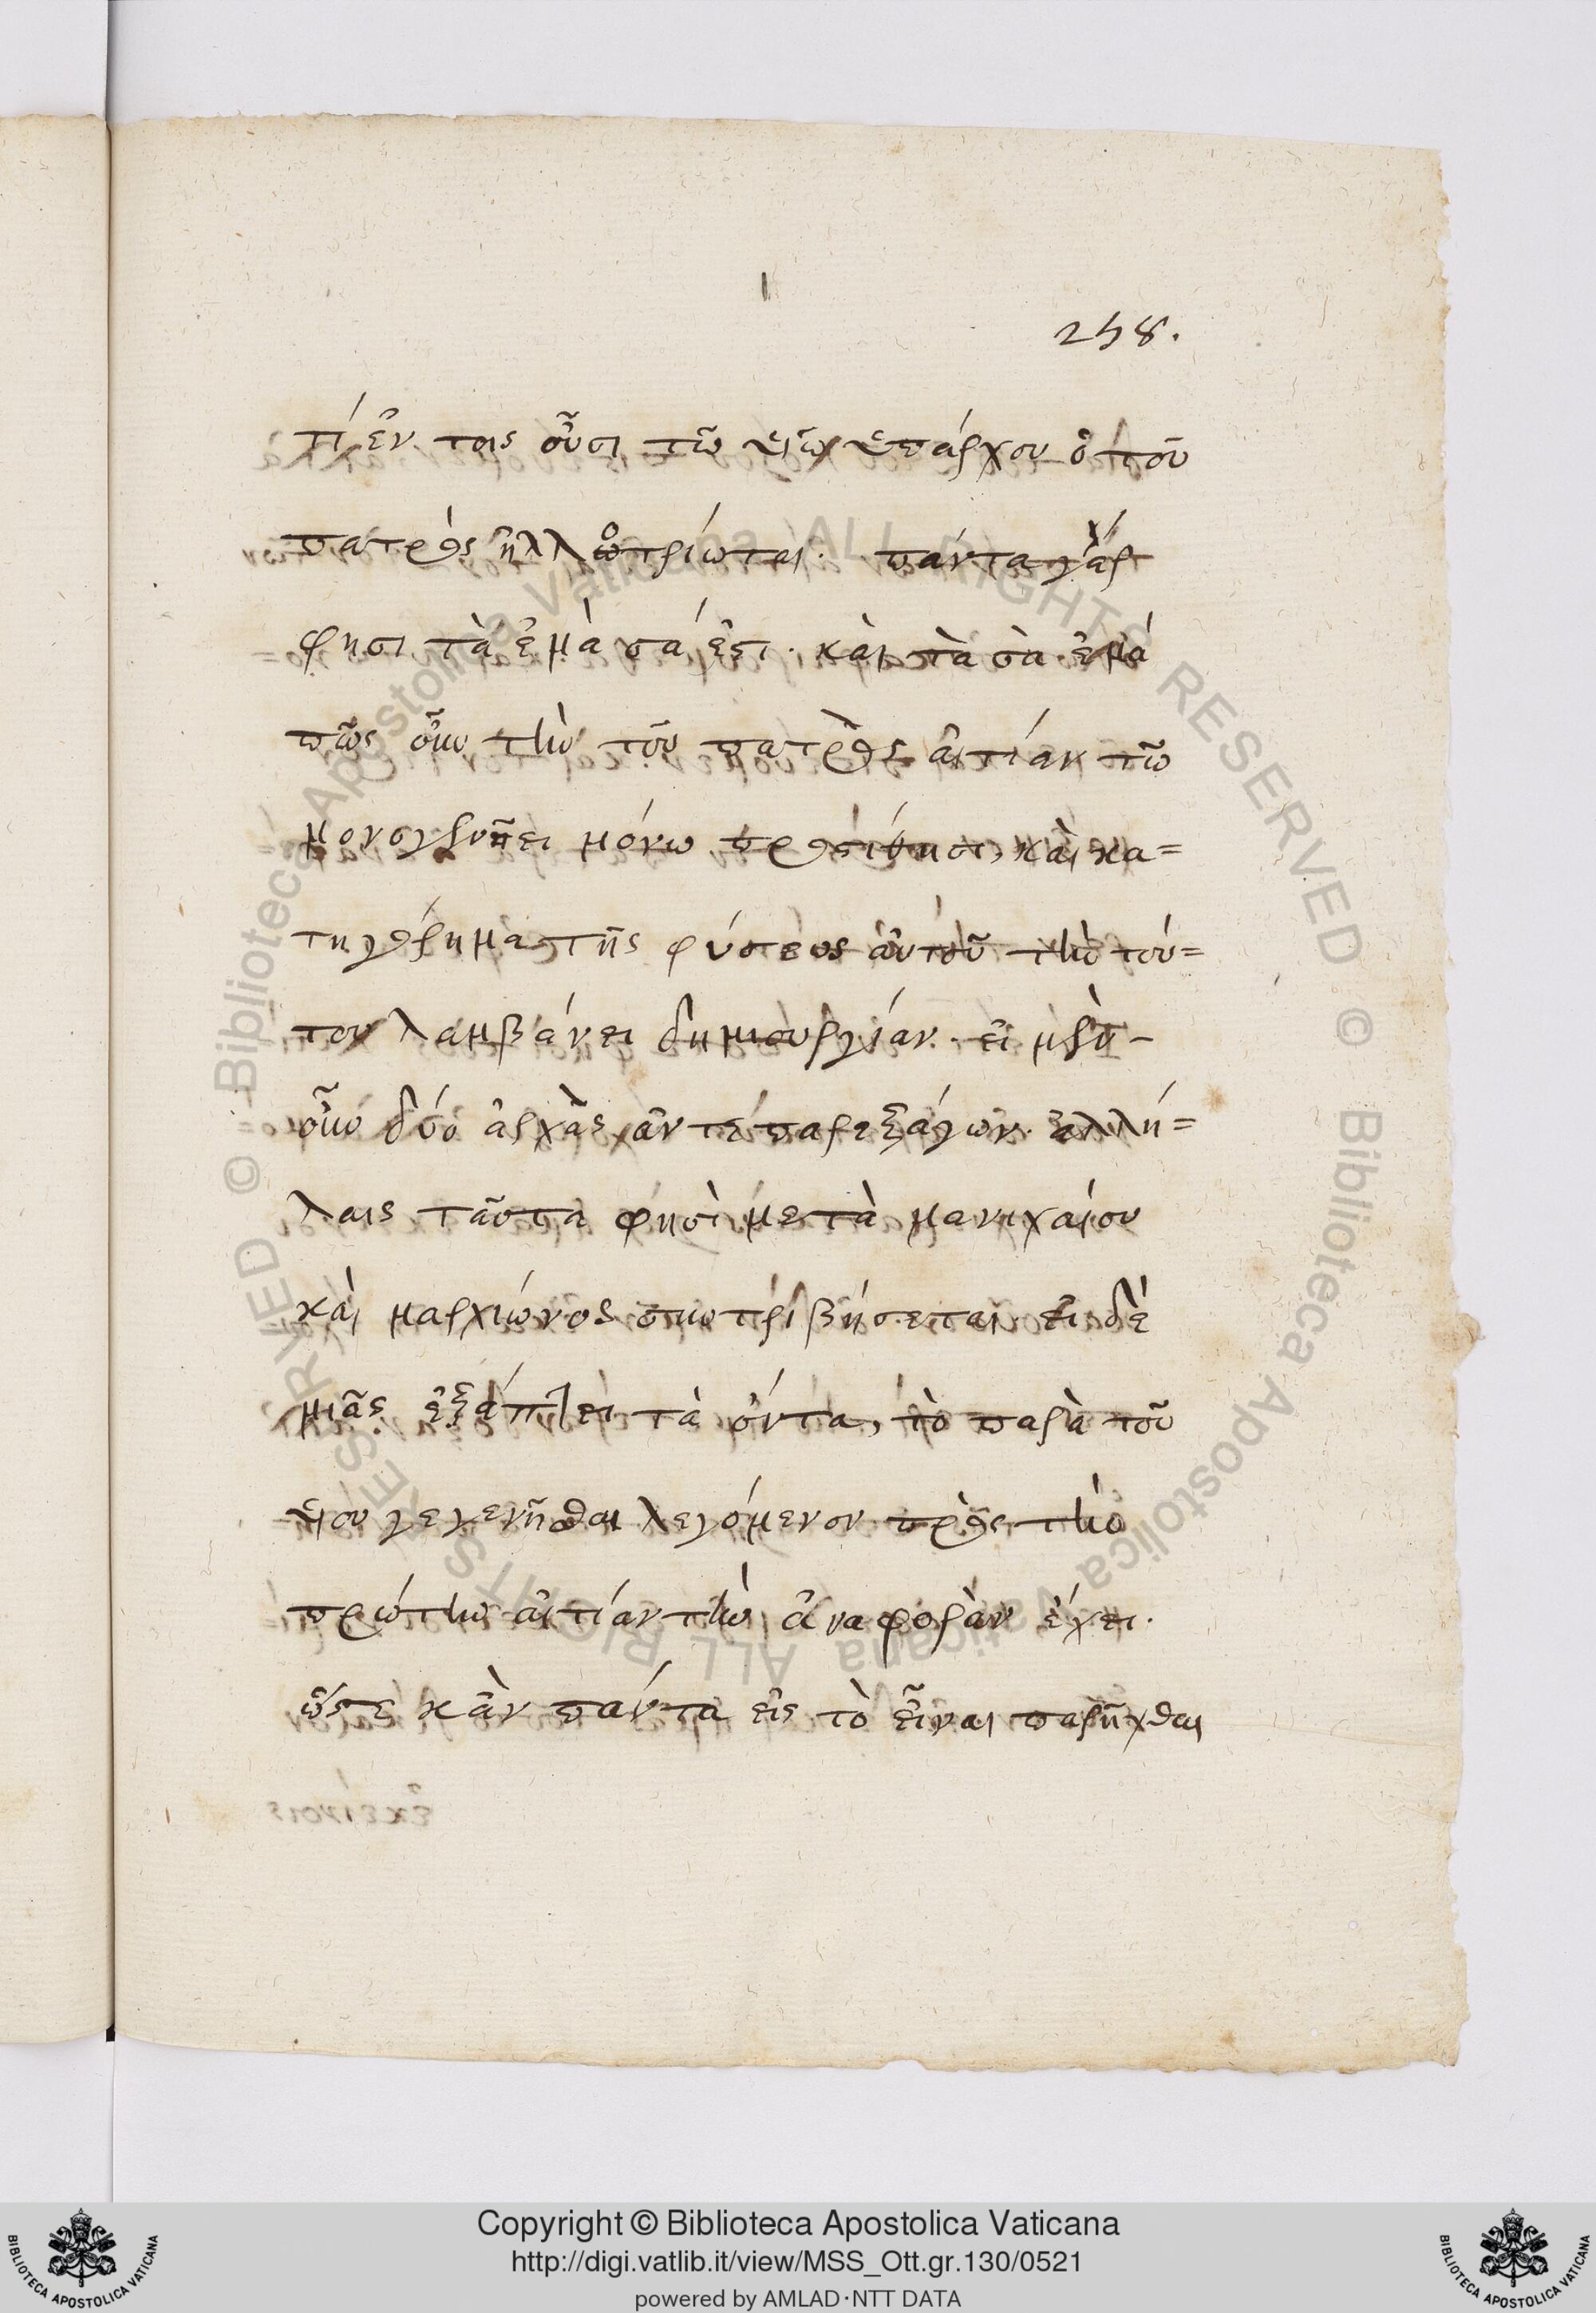 258.
τί ἐν τοις οὖσι τῶ υἱῶ ὑπάρχου ὁ τοῦ
πατρὸς ἠλλοτρίωται. πάντα γὰρ
φησι τὰ ἐμὰ σά ἐστι. καὶ τὰ σὰ ἐμά
πῶς οὖν τὴν τοῦ πατρὸς αἰτίαν τῶ
μονογενεῖ μόνω προσίησι, καὶ κα=
τηγόρημα τῆς φύσεως αὐτοῦ τὴν τού=
του λαμβάνει δημιουργίαν. εἰ μὲν
οὖν δύο ἀρχὰς ἀντεπαρεξάγων ἀλλή=
λαις ταῦτα φησὶ μετὰ μανιχαίου
καὶ μαρκίωνος συντριβήσεται εἰ δὲ
μιᾶς ἐξάπτει τὰ ὄντα, τὸ παρὰ τοῦ
υἱου γεγενῆσθαι λεγόμενον πρὸς τὴν
πρώτην αἰτίαν τὴν ἀναφορὰν ἔχει.
ὥστε κἂν πάντα εἰς τὸ εἶναι παρῆχθαι
Copyright © Biblioteca Apostolica Vaticana
http://digi.vatlib.it/view/MSS_Ott.gr.130/0521
powered by AMLAD·NTT DATA
BIBLIOTECA APOSTOLICA VATICANA
BIBLIOTECA APOSTOLICA VATICANA
© Biblioteca Apostolica Vaticana ALL RIGHTS RESERVED
© Biblioteca Apostolica Vaticana ALL RIGHTS RESERVED